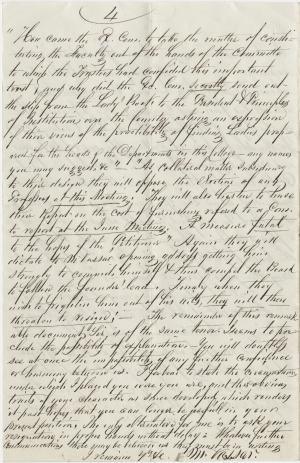 4
"How came the Ex. Com. to take the matter of consti-
tuting the Faculty out of the hands of the Committee
to whom the Trustees had confided this important
trust, and why did the Ex. Com. secretly send out
the slip from the Lady Prof's to the President & Principals
of Institutions over the country, asking an expression
of their views of the probabilities of finding Ladies prep-
ared for the heads of the Departments in this College — any names
you may suggest, &c? As Collateral matter Subsidiary
to their design they will oppose the Election of any
Professors at this Meeting. They will also desire to have
their Report on the Cost of furnishing referred to a Com.
to report at the June Meeting. A Measure fatal
to the hopes of the Petitioner" Again they will
dictate to Mr Vassar opening address getting him
strongly to commit himself & thus compel the Board
to follow the founders' lead, & simply when they
wish to frighten him out of his wits, they will then
threaten to resign;" — The remainder of this remark-
able document, Sir, is of the same tenor. Seems to pre-
clude the possibility of explanation — You will doubtless
see at once the impossibility of any further confidence
or harmony between us. I forbear to state the
under which I placed you where you are, and the obvious
traits of your character as since developed, which renders
it past hope that you can longer be useful in your
present position. The only alternative for me is to ask your
resignation in proper hands without delay. Whatever further
Communications there may be between us they must be in writing
I remain yrs &c.